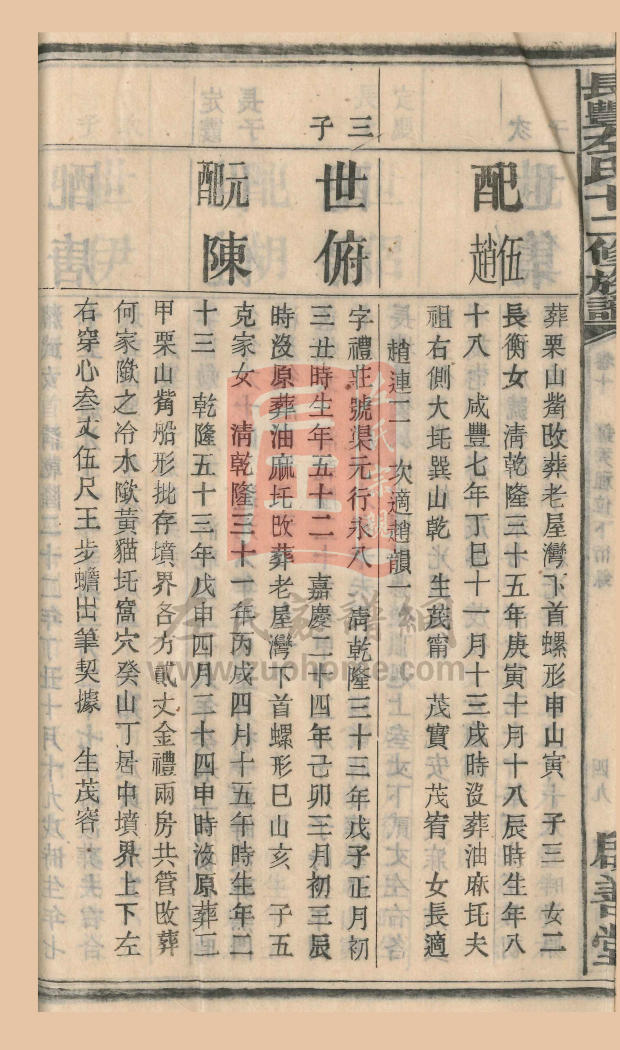 長豐左氏十二修族譜
卷十
四九
啟善堂
次
子
配伍趙
葬栗山觜改葬老屋灣下首螺形申山寅 子三 女二
長衡女 清乾隆三十五年庚寅十月十八辰時生年八
十八 咸豐七年丁巳十一月十三戌時沒葬油麻圫夫
祖右側大圫巽山乾 生茂甯 茂寶安茂宥 女長適
趙連二 次適趙韻一
三
子
世俯
字禮莊號渠元行永八 清乾隆三十三年戊子正月初
三丑時生年五十二 嘉慶二十四年己卯三月初三辰
時沒原葬油麻圫改葬老屋灣下首螺形巳山亥 子五
元配陳
克家女 清乾隆三十一年丙戌四月十五午時生年二
十三 乾隆五十三年戊申四月二十四申時沒原葬二
甲栗山觜船形批存墳界各方貳丈金禮兩房共管改葬
何家歐之冷水歐黃貓圫窩穴癸山丁居中墳界上下左
右穿心叁丈伍尺王步蟾出筆契據 生茂容
左氏族譜網
www.zuohome.com